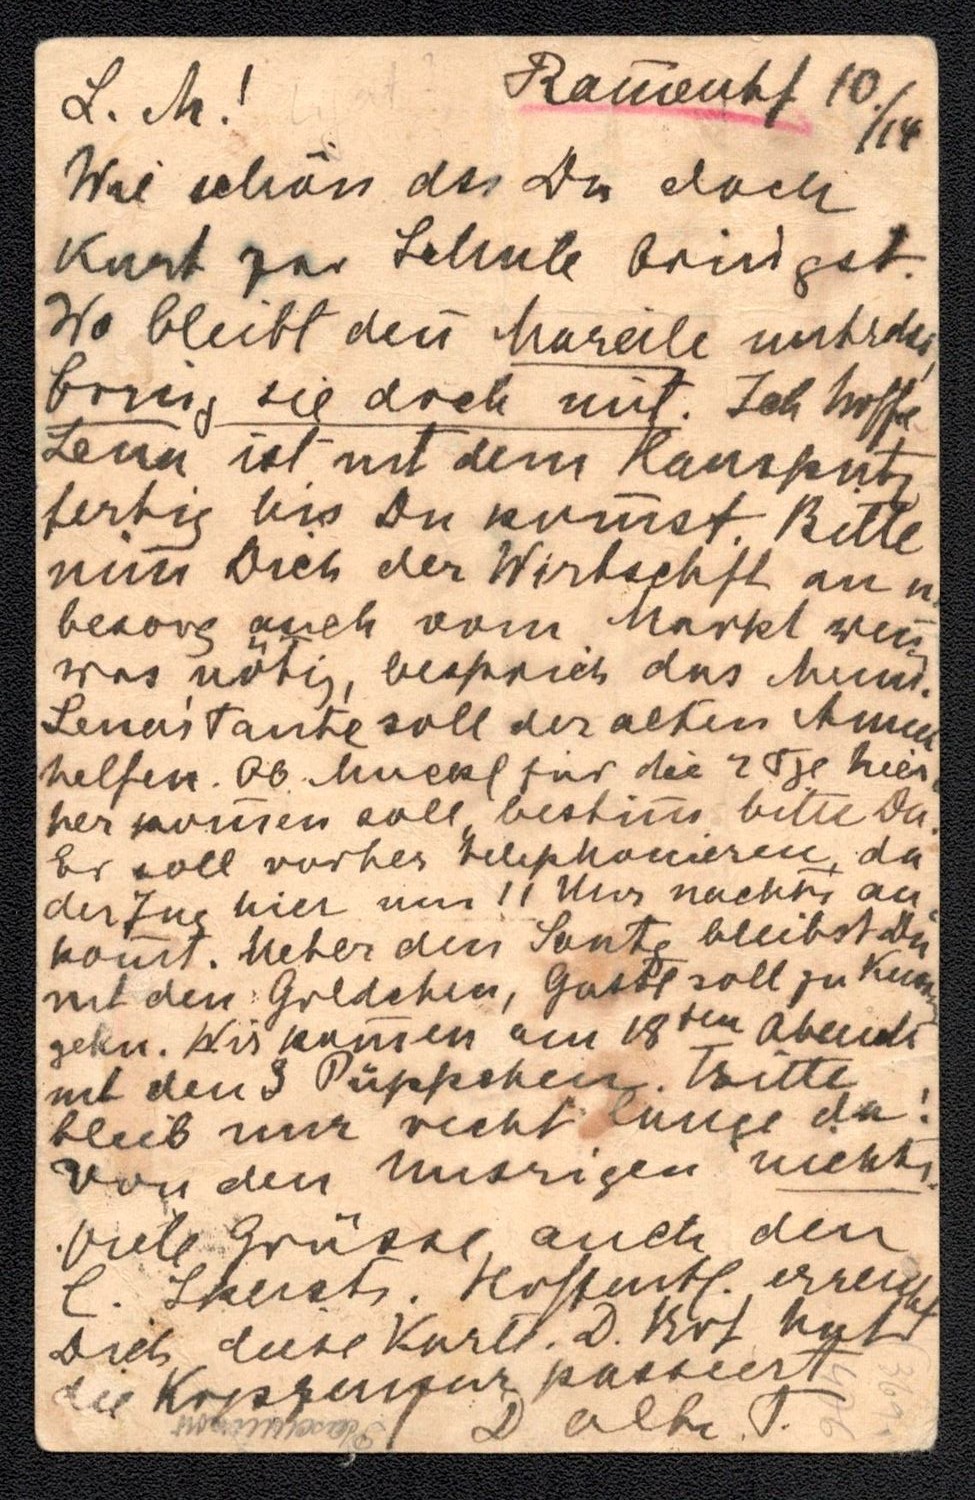 L. M.! Ramenhf 10./14
Wie schön das Du doch
Kurt zur Schule bringst.
Wo bleibt den̄ Mareile
bring sie doch mit. Ich hoffe
Lena ist mt dem Hausputz
fertig bis Du kom̄st. Bitte
nim̄ Dich der Wirtschft an u.
besorg auch vom Markt wen̄
was nötig, besprich das Menu.
Lena's Tante soll der alten
helfen. Ob Muckel für die 2 Tge hier
her kom̄en soll, bestim̄ bitte Du.
Er soll vorher telephonieren, da
der Zug hier um 11 Uhr nachts an
kom̄t. Ueber den Sontg bleibst Du
mt den Goldchen, soll zu
gehn. Wir kom̄en am 18ten Abends
mt den 3 Püppchen. Bitte
bleib nur recht lange da!
Von den Unsrigen nichts.
Viele Grüsse, auch den
l. Hoffentl. erreicht
Dich diese Karte. D. Brf hat
die passiert
D alte T.